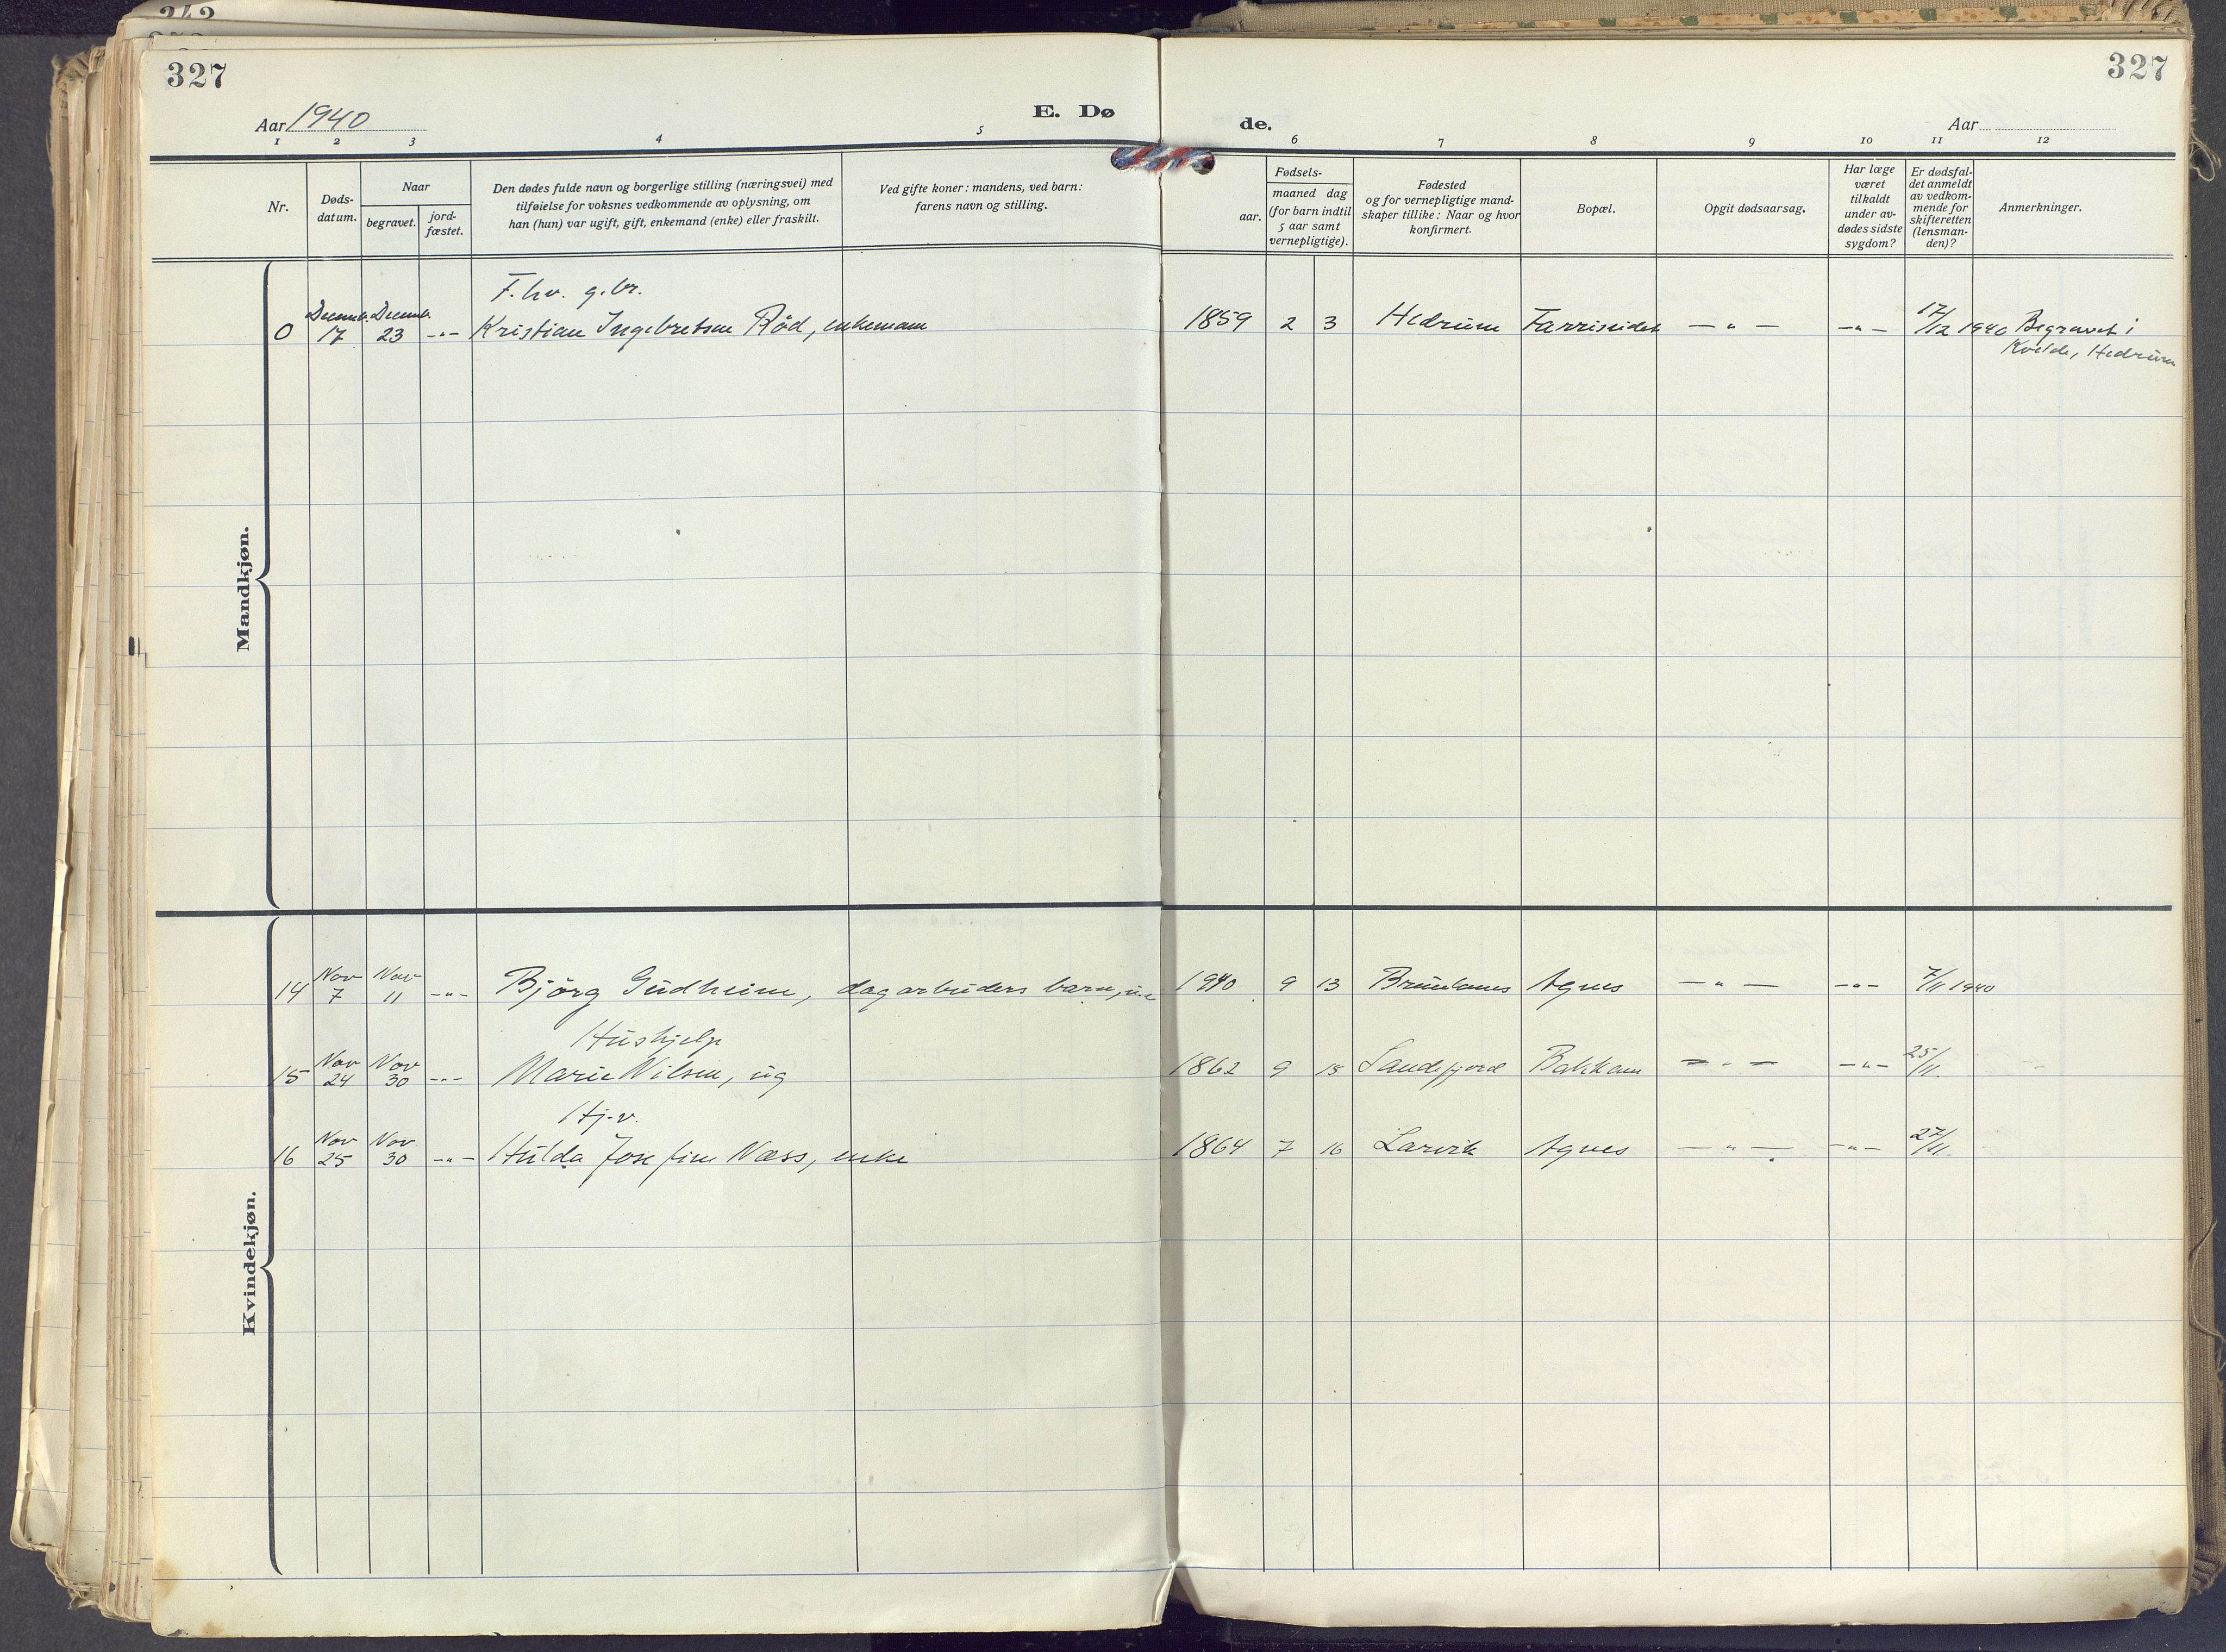 342
327
327
Aar 1940
E. Dø
de.
Aar
1 2 3 4 5 6 7 8 9 10 11 12
Nr.
Døds-
datum.
Naar
begravet.
jord-
fæstet.
Den dødes fulde navn og borgerlige stilling (næringsvei) med
tilføielse for voksnes vedkommende av oplysning, om
han (hun) var ugift, gift, enkemand (enke) eller fraskilt.
Ved gifte koner: mandens, ved barn:
farens navn og stilling.
Fødsels-
aar.
maaned dag
(for barn indtil
5 aar samt
vernepligtige).
Fødested
og for vernepligtige mand-
skaper tillike: Naar og hvor
konfirmert.
Bopæl.
Opgit dødsaarsag.
Har læge
været
tilkaldt
under av-
dødes sidste
sygdom?
Er dødsfal-
det anmeldt
av vedkom-
mende for
skifteretten
(lensman-
den)?
Anmerkninger.
Mandkjøn.
F. hv. g.br.
Decemb. Decemb. 17/12
0 17 23 -"- Kristian Ingebretsen Rød, enkemann 1859 2 3 Hedrum Farriseidet - " - -"- 1940 Begravet i
Kvelde, Hedrum
Kvindekjøn.
Nov Nov
14 7 11 -"- Bjørg Gudheim, dagarbeiders barn, 1940 9 13 Brunlanes Agnes - " - -"- 7/11 1940
Hushjelp
Nov Nov
15 24 30 -"- Marie Nilsen, ug 1862 9 15 Sandefjord Bakkane - " - -"- 25/11.
Hj.v.
Nov Nov
16 25 30 -"- Hulda Josefine Næss, enke 1864 7 16 Larvik Agnes - " - -"- 27/11.